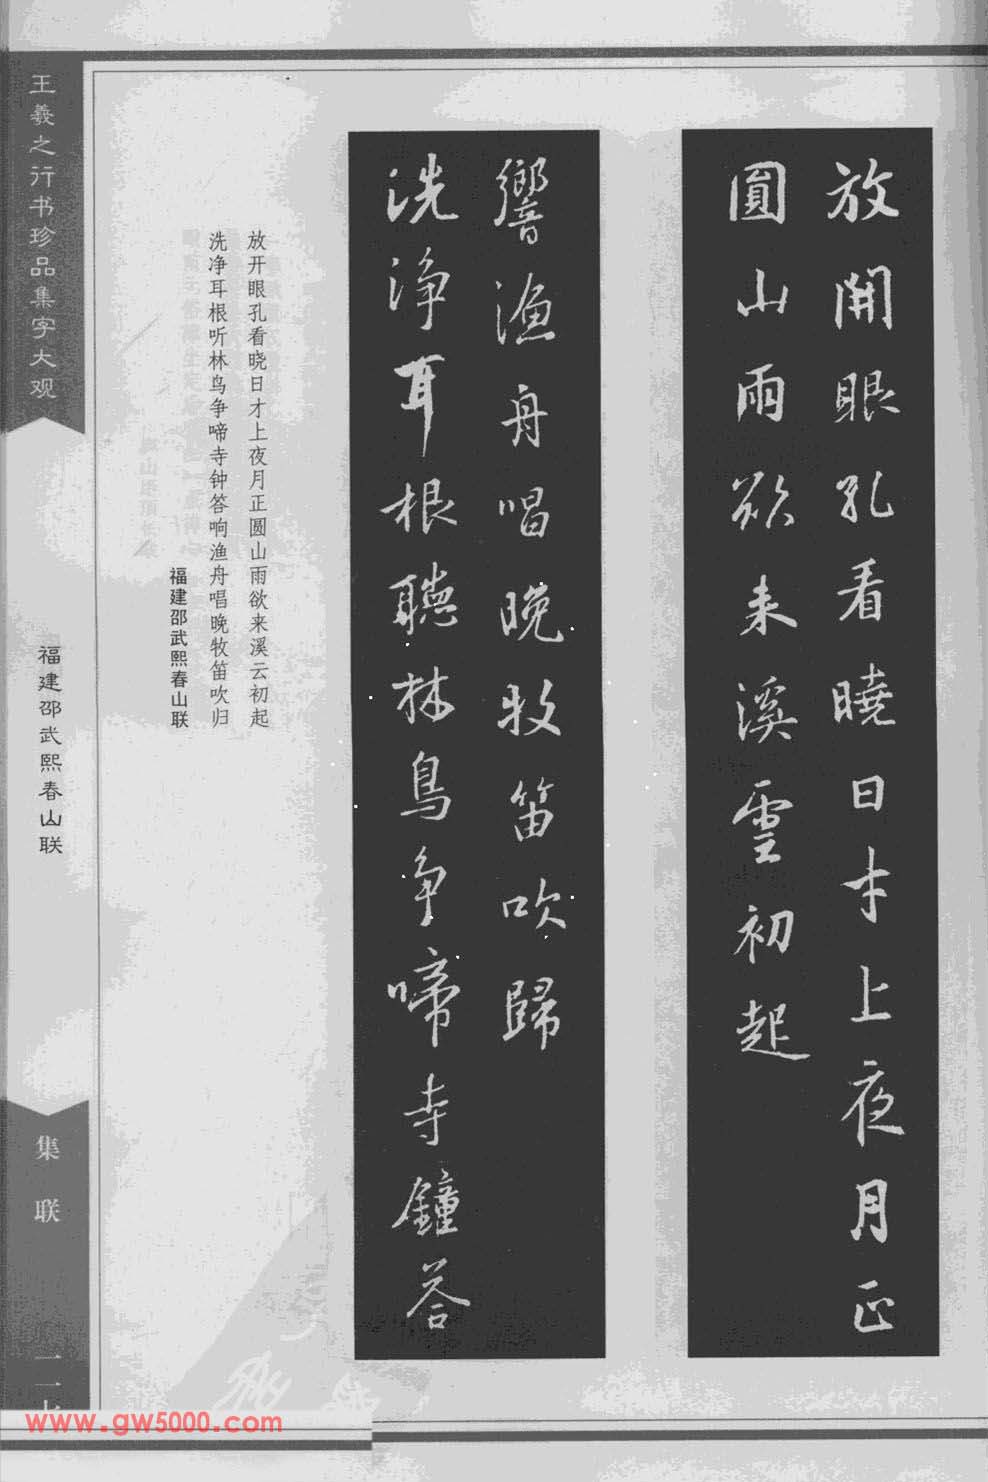 放開眼孔看曉日才上夜月正
圓山雨欲来溪雲初起
洗净耳根聽林鳥争啼寺鐘答
響漁舟唱晚牧笛吹歸
放开眼孔看晓日才上夜月正圆山雨欲来溪云初起
洗净耳根听林鸟争啼寺钟答响渔舟唱晚牧笛吹归
福建邵武熙春山联
王羲之行书珍品集字大观
福建邵武熙春山联
集联
www.gw5000.com